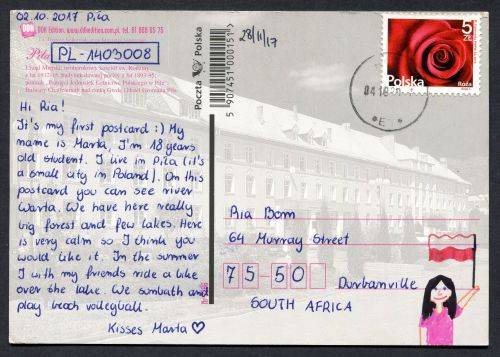 02.10.2017 Piła
DDK Edition. www.ddkedition.com.pl tel. 61 868 65 75
PL-1403008
Hi Ria!
It's my first postcard :) My
name is Marta, I'm 18 years
old student. I live in Piła (it's
a small city in Poland). On this
postcard you can see river
Warta. We have here really
big forest and few lakes. Here
is very calm so I think you
would like it. In the summer
I with my friends ride a bike
over the lake. We sunbath and
play beach volleyball.
Kisses Marta
Poczta Polska
5 907451 000151
28/11/17
5
ZŁ
Polska
Róża
04 10
E
Ria Bom
64 Murray Street
75-50 Durbanville
SOUTH AFRICA